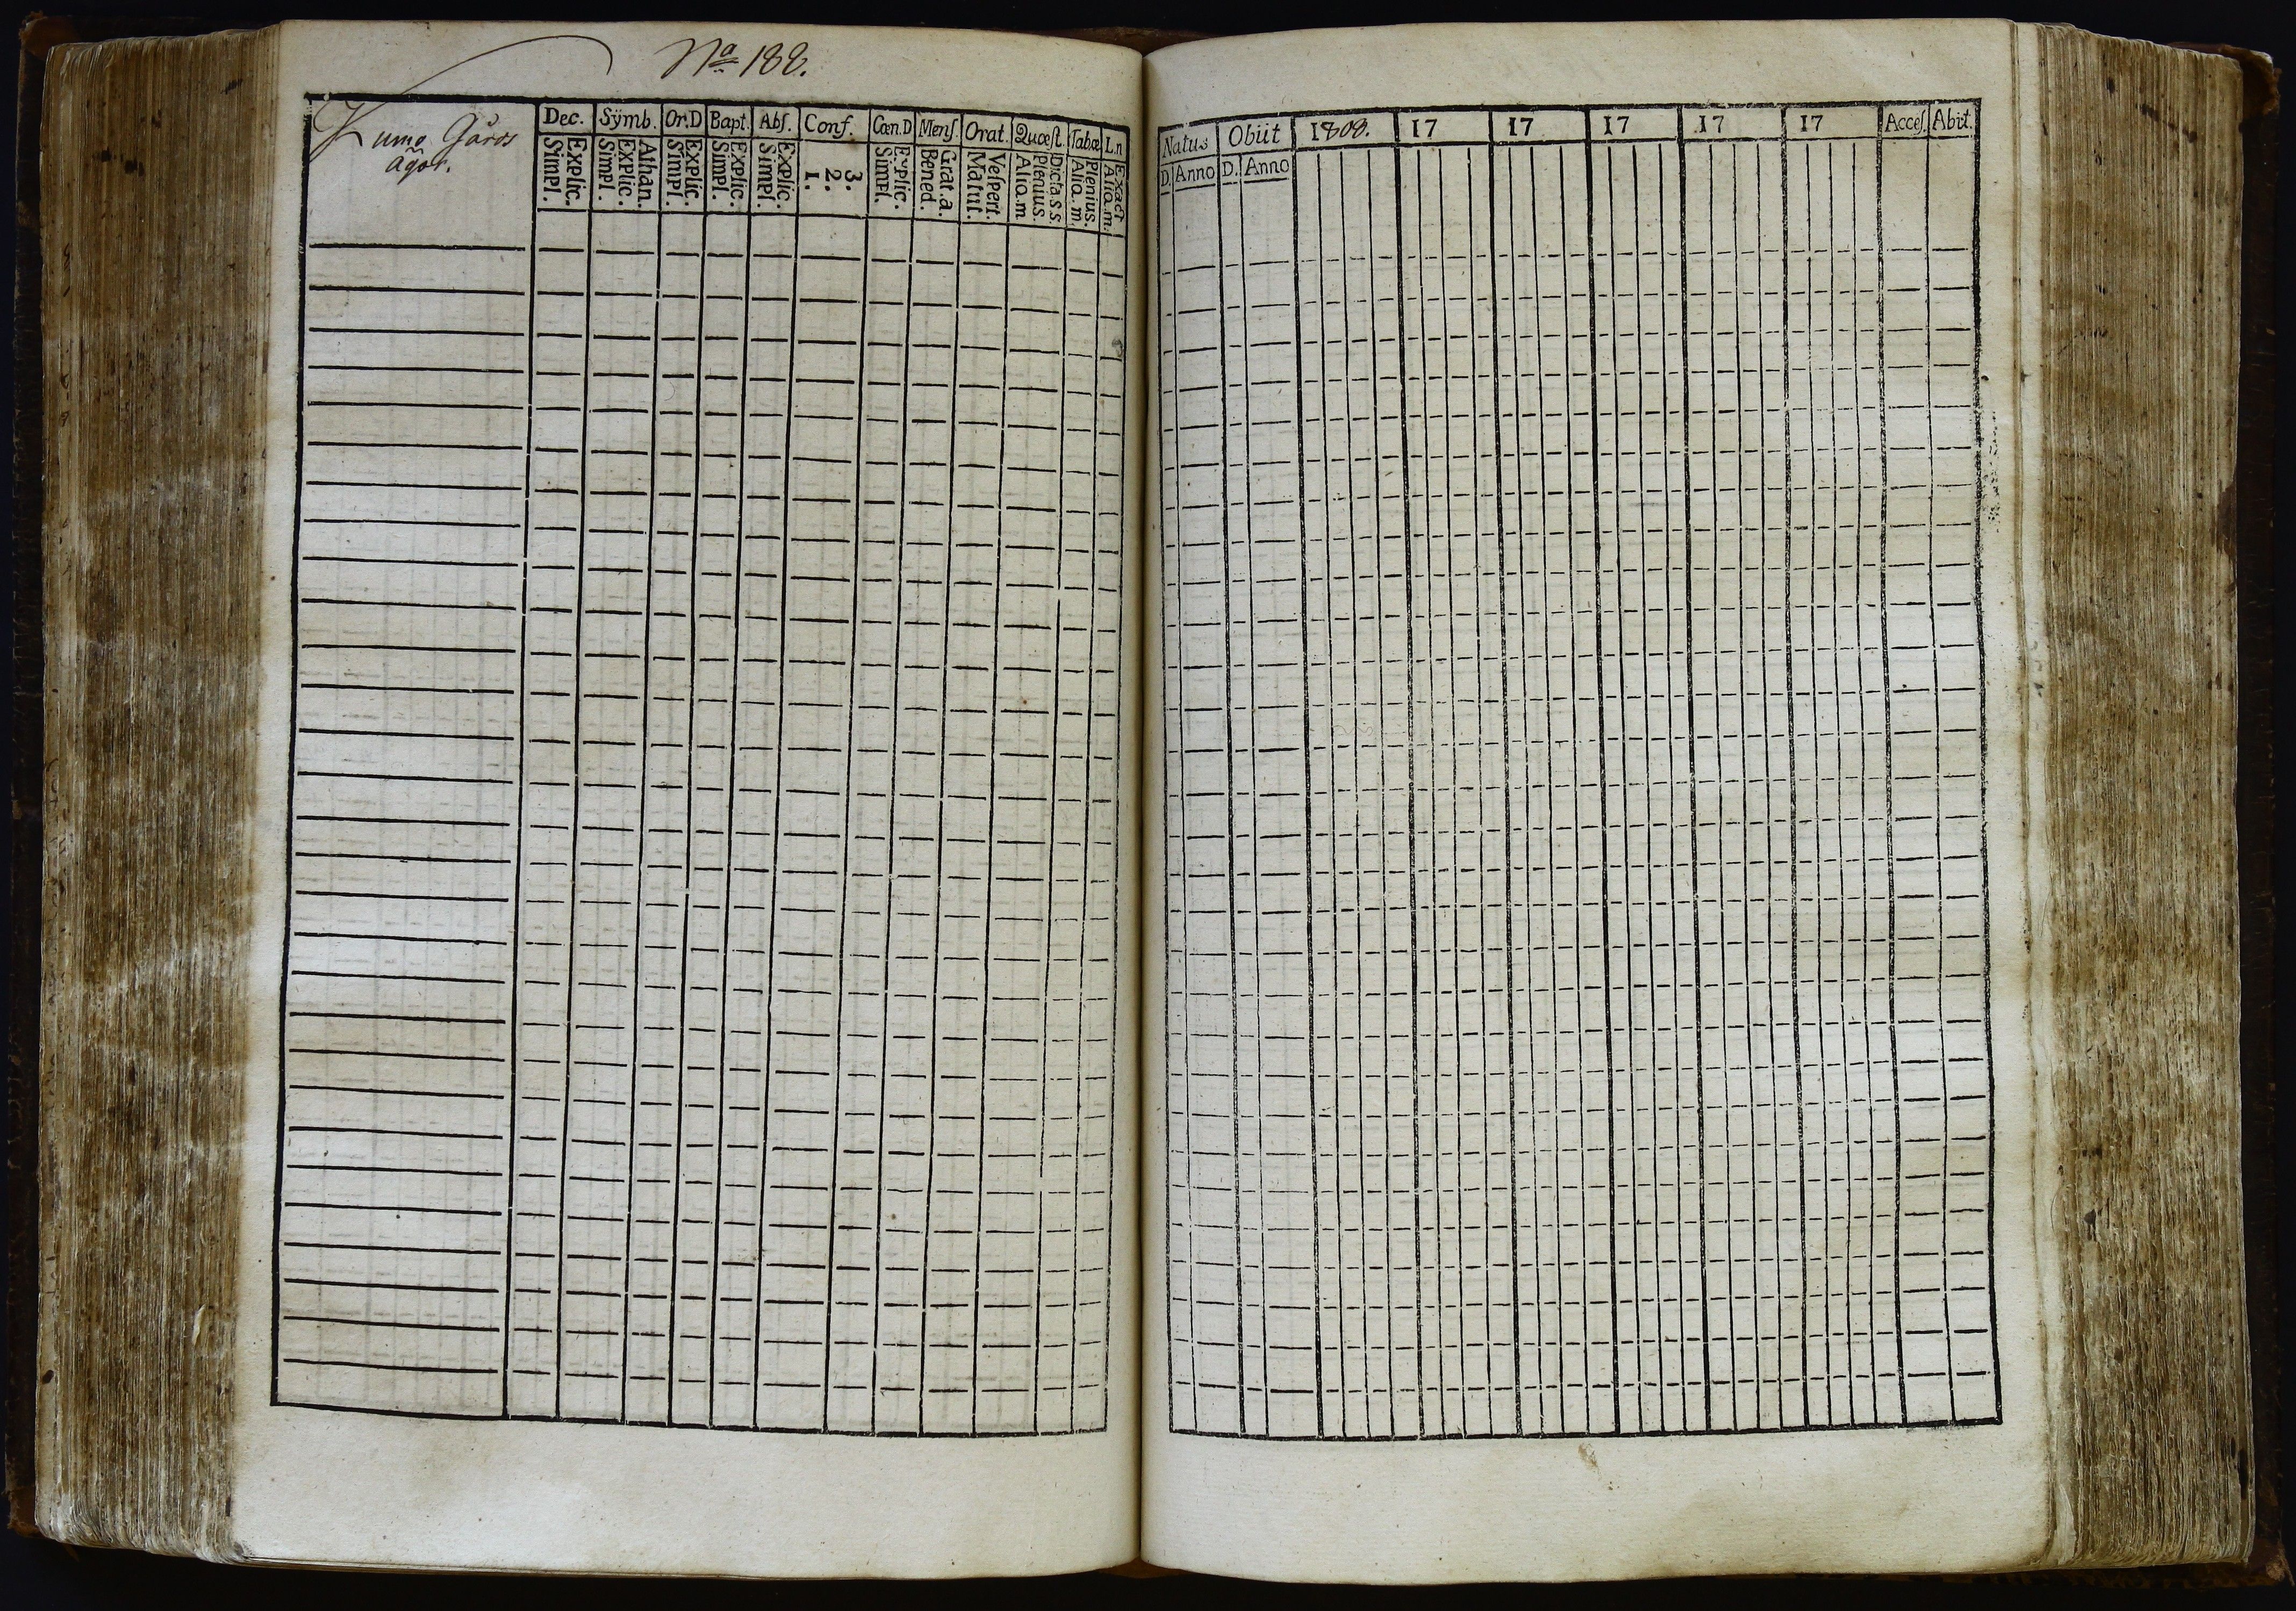 Na 188.
Kumo Gåros
ägor.
Dec. Sÿmb. Or.D Bapt. Abſ. Conf. Cœn.D Menſ Orat. Quæſt. Tabæ L.n
Explic. Simpl. Athan. Explic. Simpl. Explic. Simpl. Explic. Simpl. Explic. Simpl. 3. 2. 1. Explic. Simpl. Grat. a. Bened. Veſpert. Matut. Dicta.s s. Plenius. Alio.m. Plenius. Alio. m. Exact Alio.m.
Natus Obiit 1808. 17 17 17 17 17 Acceſ. Abit.
D. Anno D. Anno